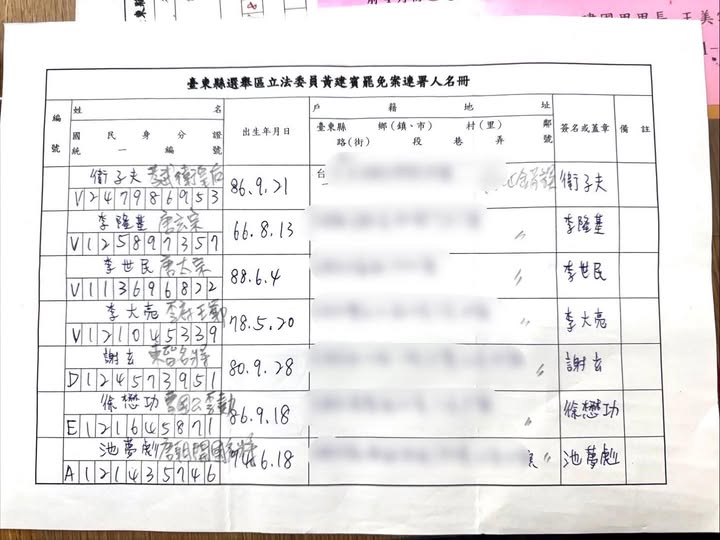 臺東縣選舉區立法委員黃建賓罷免案連署人名冊
編號
姓名
國民身分證
統一編號
出生年月日
戶籍地址
臺東縣 鄉(鎮、市) 村(里) 鄰
路(街) 段 巷 弄 號
簽名或蓋章
備註
衛子夫 衛皇后
V247986953
86.9.21
台
衛子夫
李隆基 唐玄宗
V125897357
66.8.13
〃
李隆基
李世民 唐太宗
V113696822
88.6.4
〃
李世民
李大亮
V121045339
78.5.20
〃
李大亮
謝玄 東晉名將
D124573951
80.9.28
〃
謝玄
徐懋功
E121645871
86.9.18
〃
徐懋功
池夢彪 唐朝開國
A121435746
74.6.18
〃
池夢彪